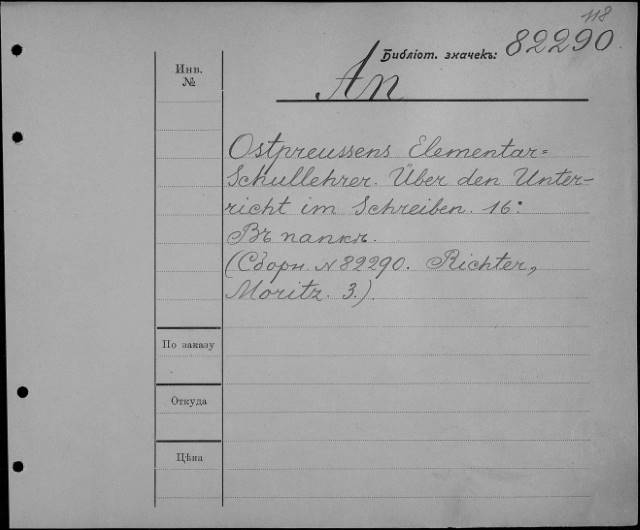 118
Библіот. значекъ: 82290
Инв.
№
An
Ostpreussens Elementar=
Schullehrer. Über den Unter-
richt im Schreiben. 16:
Въ папкѣ.
(Сборн. № 82290. Richter,
Moritz. 3.).
По заказу
Откуда
Цѣна